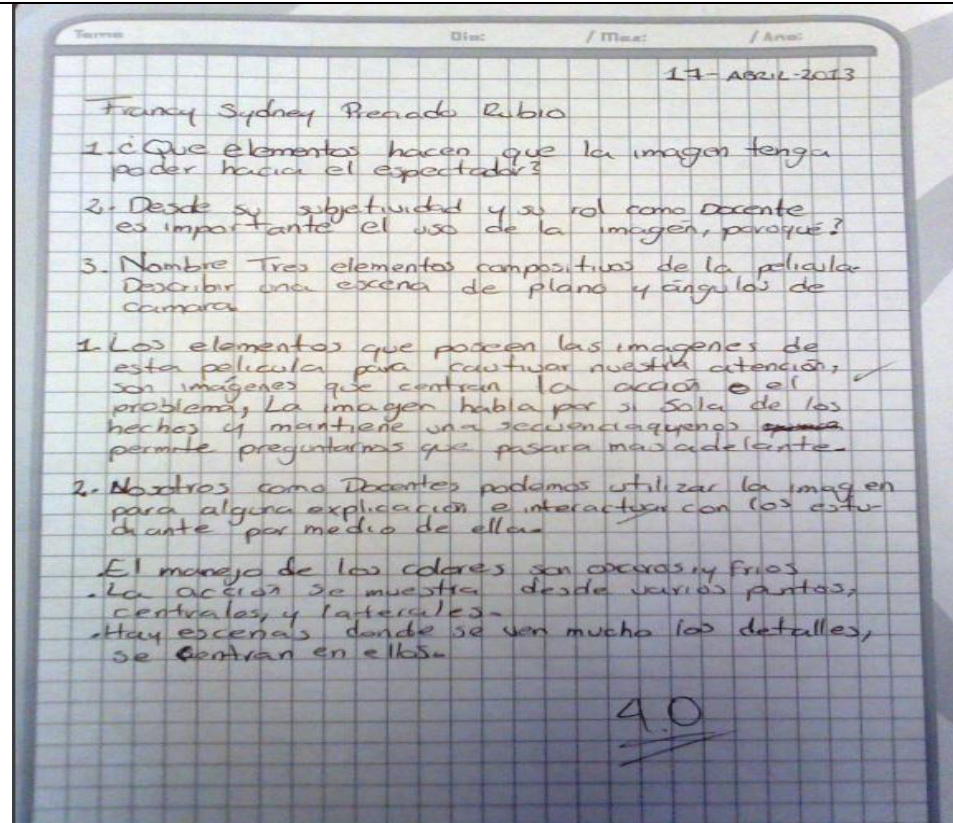 Tema: Dia: / Mes: / Ano:
17-ABRIL-2013
Francy Sydney Preciado Rubio
1. ¿Que elementos hacen que la imagen tenga
poder hacia el espectador?
2. Desde su subjetividad y su rol como Docente
es importante el uso de la imagen, poroque?
3. Nombre Tres elementos compositivos de la pelicula.
Describir una escena de plano y ángulos de
camara.
1. Los elementos que poseen las imagenes de
esta pelicula para cautivar nuestra atención,
son imágenes que centran la acción o el
problema, La imagen habla por si sola de los
hechos y mantiene una secuencia que nos
permite preguntarnos que pasara mas adelante.
2. Nosotros como Docentes podemos utilizar la imagen
para alguna explicación e interactuar con los estu-
diante por medio de ella.
.El manejo de los colores son oscuros, y frios
.La acción se muestra desde varios puntos,
centrales, y laterales.
.Hay escenas donde se ven mucho los detalles,
se centran en ellos.
4.0